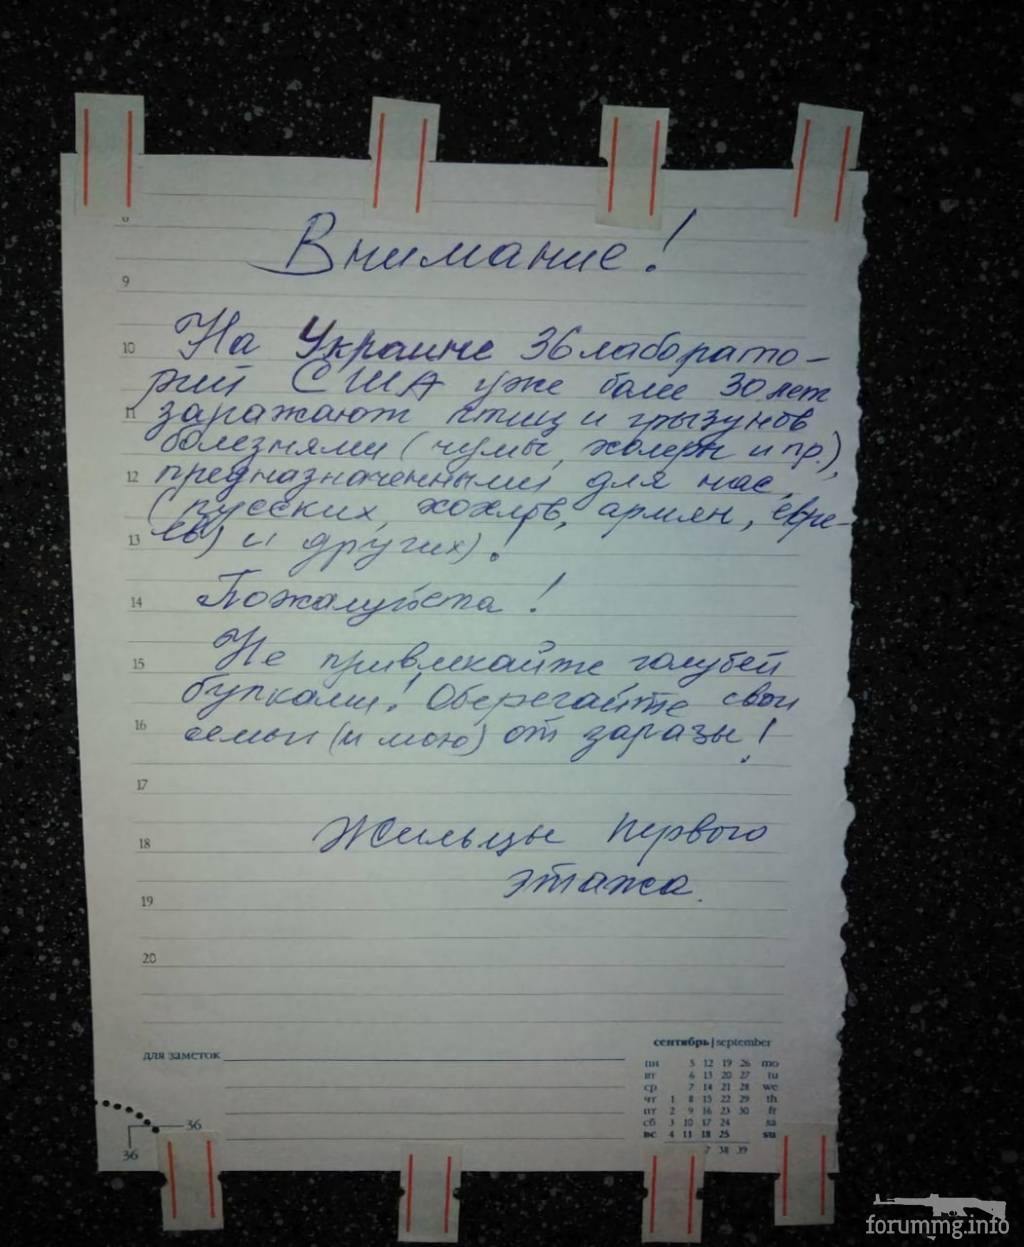 8
Внимание!
9
10 На Украине 36 лаборато-
рий США уже более 30 лет
11 заражают птиц и грызунов
болезнями (чумы, холеры и пр.),
12 предназначенными для нас,
(русских, хохлов, армян, евре-
13 ев) и других).
14 Пожалуйста!
15 Не привлекайте голубей
булками! Оберегайте свои
16 семьи (и мою) от заразы!
17
18 Жильцы первого
этажа.
19
20
для заметок
сентябрь | september
пн 5 12 19 26 mo
вт 6 13 20 27 tu
ср 7 14 21 28 we
чт 1 8 15 22 29 th
пт 2 9 16 23 30 fr
сб 3 10 17 24 sa
вс 4 11 18 25 su
7 38 39
36
36
forummg.info